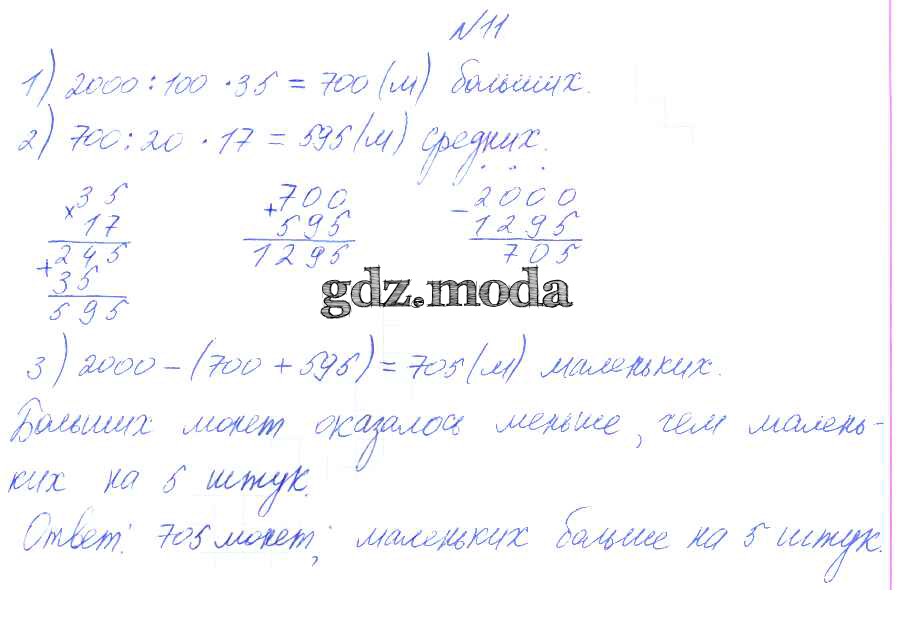 №11
1) 2000:100·35=700(м) больших.
2) 700:20·17=595(м) средних.
×35 +700 −2000
17 595 1295
245 1295 705
+35
595
gdz.moda
3) 2000−(700+595)=705(м) маленьких.
Больших монет оказалось меньше, чем малень-
ких на 5 штук.
Ответ: 705 монет; маленьких больше на 5 штук.